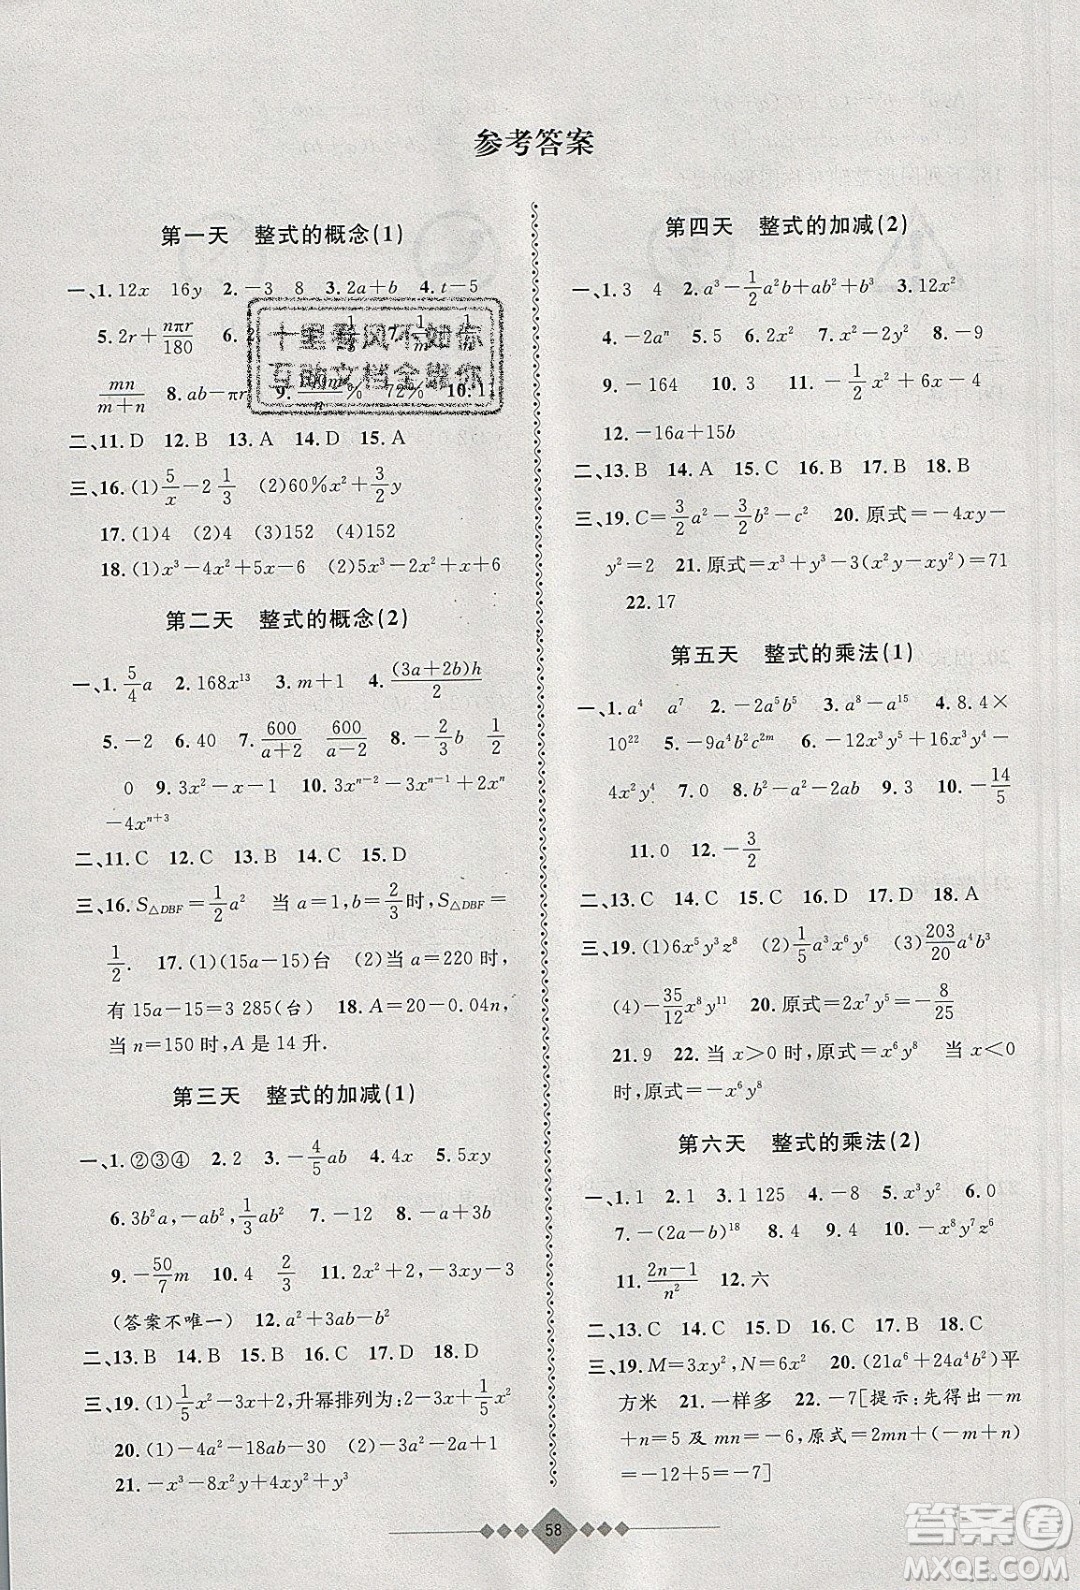 参考答案
第一天 整式的概念(1)
一、1. 12x 16y 2. -3 8 3. 2a+b 4. t-5
5. 2r+nπr/180 6. 2
mn/(m+n) 8. ab-πr 9. % 72% 10. 11
十里春风不如你
互动文档全靠你
二、11. D 12. B 13. A 14. D 15. A
三、16. (1)5/x-2 1/3 (2)60%x²+3/2y
17. (1)4 (2)4 (3)152 (4)152
18. (1)x³-4x²+5x-6 (2)x³-4x²+x+6
第二天 整式的概念(2)
一、1. 5/4a 2. 168x¹³ 3. m+1 4. (3a+2b)h/2
5. -2 6. 40 7. 600/(a+2) 600/(a-2) 8. -2/3b 1/2
0 9. 3x²-x-1 10. 3xⁿ⁻²-3xⁿ⁻¹+2xⁿ
-4xⁿ⁺³
二、11. C 12. C 13. B 14. C 15. D
三、16. S△DBF=1/2a² 当 a=1,b=2/3时,S△DBF=
1/2. 17. (1)(15a-15)台 (2)当 a=220 时,
有 15a-15=3 285(台) 18. A=20-0.04n,
当 n=150 时,A 是 14 升.
第三天 整式的加减(1)
一、1. ②③④ 2. 2 3. -4/5ab 4. 2x 5. 5xy
6. 3b²a,-ab²,1/3ab² 7. -12 8. -4a+3b
9. -50/7m 10. 4 2/3 11. 2x²+2,-3xy-3
(答案不唯一) 12. a²+3ab-b²
二、13. B 14. B 15. D 16. C 17. D 18. D
三、19. (1)1/5x²-3x+2,升幂排列为:2-3x+1/5x²
20. (1)-4a²-18ab-30 (2)-2a+1
21. -x³-8x²y-2xy²-y³
第四天 整式的加减(2)
一、1. 3 4 2. a³-1/2a²b+2ab² 3. 12x²
4. -2x²-xy+2y² 5. 0 6. 1 7. x²-x 8. 6
9. -164 10. 3 11. -1/2x²+6x-4
12. -16a+15b
二、13. B 14. A 15. C 16. B 17. B 18. B
三、19. C=3/2a²-3/2b²-c² 20. 原式=-4xy-
y²=2 21. 原式=x³+y³-3(x²y-xy²)=71
22. 17
第五天 整式的乘法(1)
一、1. a⁴ a⁷ 2. -2a⁵b⁵ 3. a⁸-a¹⁵ 4. 8.4×
10²² 5. -9a⁴b²c²ᵐ 6. -12x³y²+16x³y³-
4x²y⁴ 7. 0 8. b²-a²-2ab 9. 3 10. -14/5
11. 0 12. -3/2
二、13. C 14. D 15. C 16. A 17. D 18. A
三、19. (1)6x⁵y³z⁸ (2)1/5a³x⁶y⁶ (3)203/20a⁴b³
(4)-35/12x⁸y¹¹ 20. 原式=2x⁷y⁵=-8/25
21. 9 22. 当 x>0 时,原式=x⁶y⁸ 当 x<0
时,原式=-x⁶y⁸
第六天 整式的乘法(2)
一、1. 1 2. 1 3. 1 125 4. -8 5. x³y² 6. 0
7. -(2a-b)¹⁸ 8. 4 9. 4 10. -x⁸y⁷z⁶
11. (2n-1)/n² 12. 六
二、13. C 14. C 15. C 16. B 17. B 18. C
三、19. M=3xy²,N=6x 20. (21a⁶+24a⁴b²)平
方米 21. 一样多 22. -7[提示:先得出-m
+n=5 及 mn=-6,原式=2mn+(-m+n)
=-12+5=-7]
58
答案圈
MXQE.COM